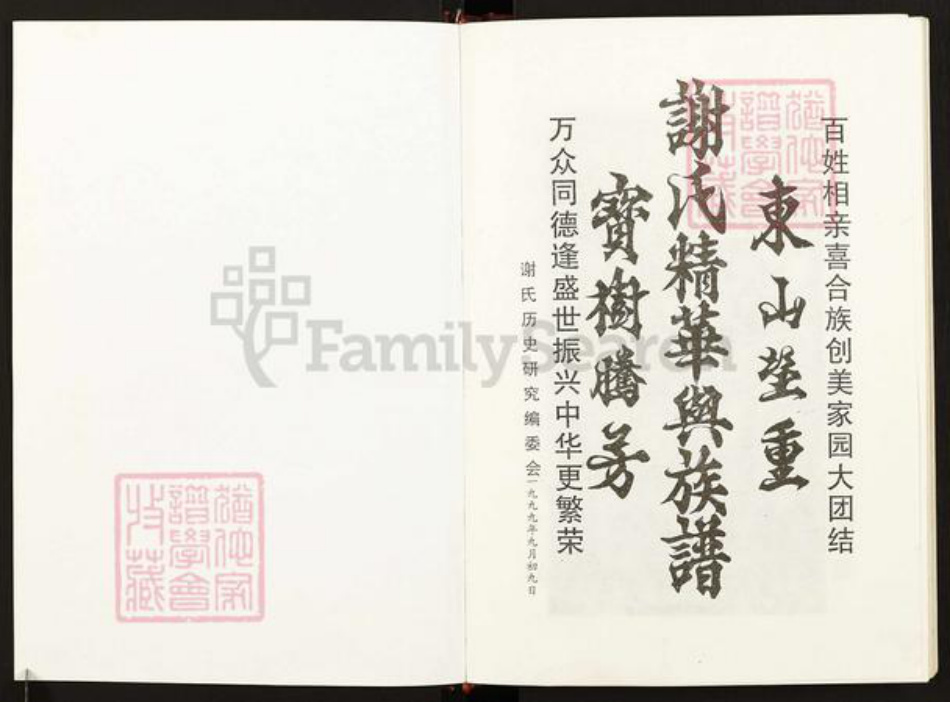 百姓相亲喜合族创美家园大团结
東山望重
謝氏精華與族譜
寳樹騰芳
万众同德逢盛世振兴中华更繁荣
谢氏历史研究编委会一九九九年九月初九日
FamilySearch
譜學會
藏
譜學會